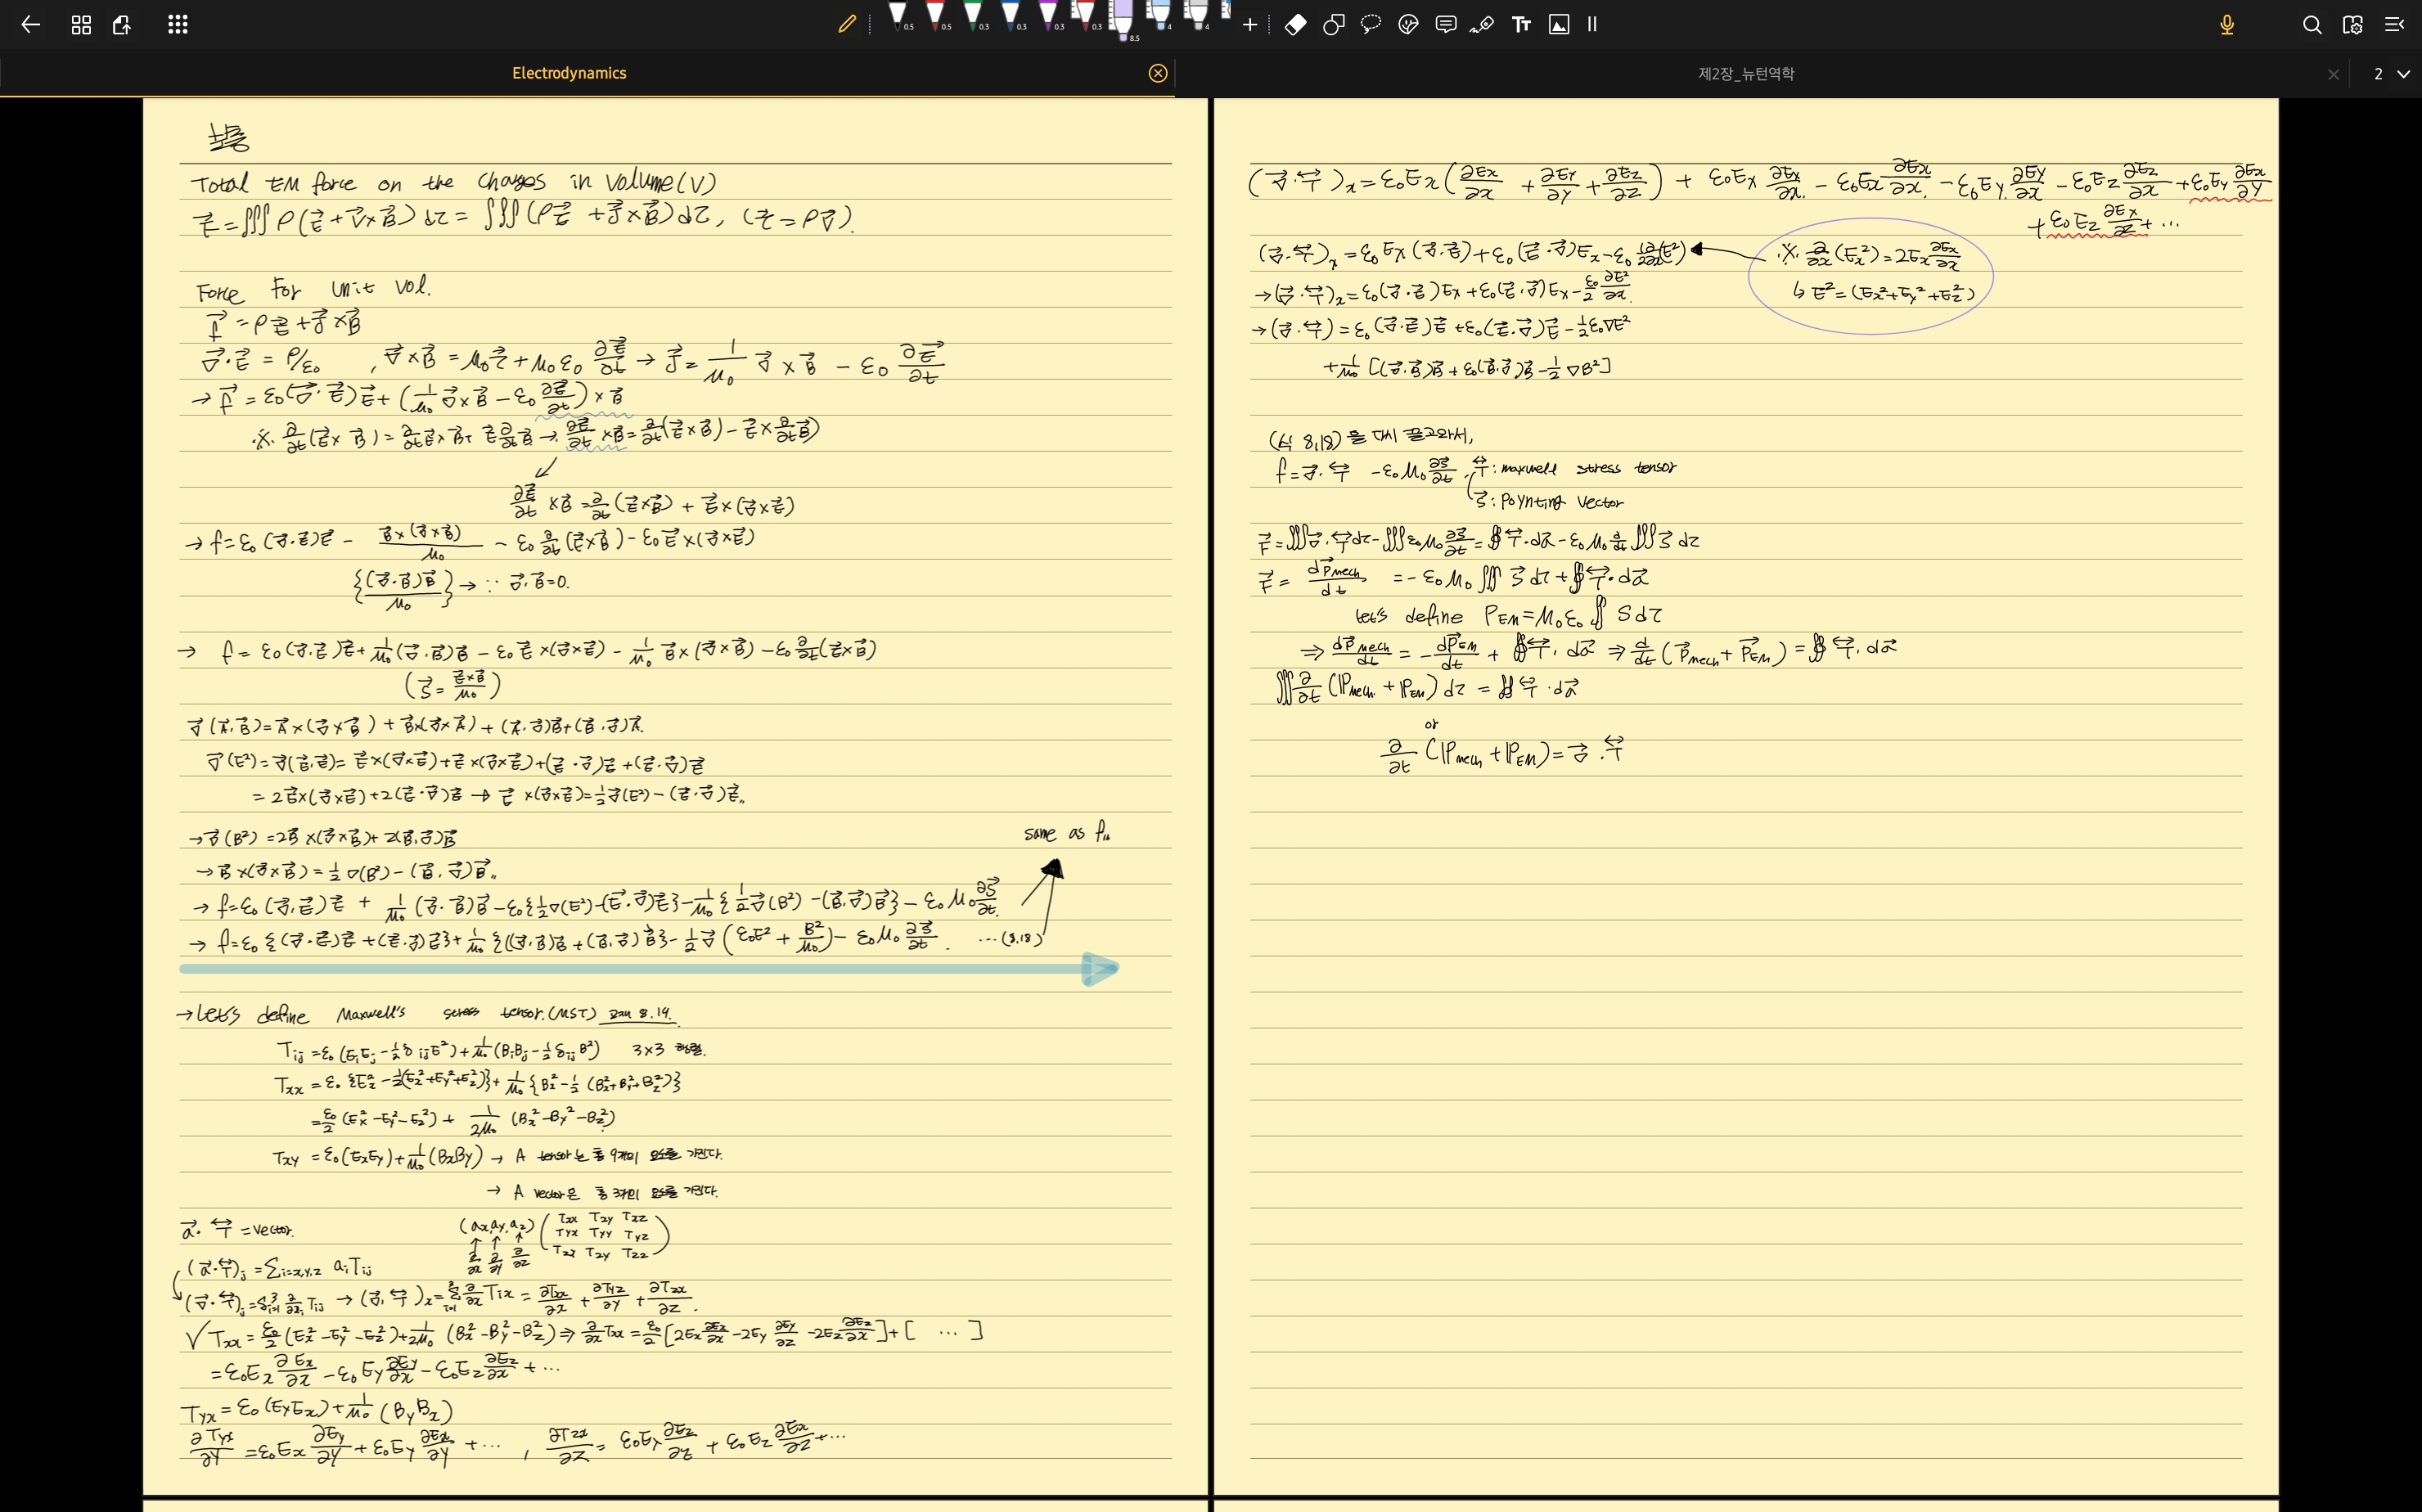 0.5 0.5 0.3 0.3 0.3 0.3 8.5 4 4
Electrodynamics
제2장_뉴턴역학
2
보충
Total EM force on the charges in volume(V)
F⃗ = ∭ ρ(E⃗ + v⃗ × B⃗) dτ = ∭ (ρE⃗ + J⃗ × B⃗) dτ, (J⃗ = ρv⃗).
Force for unit vol.
f⃗ = ρE⃗ + J⃗ × B⃗
∇⃗·E⃗ = ρ/ε₀ , ∇⃗×B⃗ = μ₀J⃗ + μ₀ε₀ ∂E⃗/∂t → J⃗ = 1/μ₀ ∇⃗ × B⃗ − ε₀ ∂E⃗/∂t
→ f⃗ = ε₀(∇⃗·E⃗)E⃗ + (1/μ₀ ∇⃗×B⃗ − ε₀ ∂E⃗/∂t) × B⃗
※ ∂/∂t(E⃗×B⃗) = ∂/∂t E⃗×B⃗ + E⃗ ∂/∂t B⃗ → ∂E⃗/∂t × B⃗ = ∂/∂t(E⃗×B⃗) − E⃗× ∂/∂t B⃗)
∂E⃗/∂t × B⃗ = ∂/∂t (E⃗×B⃗) + E⃗×(∇⃗×E⃗)
→ f = ε₀(∇⃗·E⃗)E⃗ − B⃗×(∇⃗×B⃗)/μ₀ − ε₀ ∂/∂t (E⃗×B⃗) − ε₀E⃗×(∇⃗×E⃗)
{(∇⃗·B⃗)B⃗/μ₀} → ∵ ∇⃗·B⃗=0.
→ f = ε₀(∇⃗·E⃗)E⃗ + 1/μ₀(∇⃗·B⃗)B⃗ − ε₀E⃗×(∇⃗×E⃗) − 1/μ₀ B⃗×(∇⃗×B⃗) − ε₀ ∂/∂t(E⃗×B⃗)
(S⃗ = E⃗×B⃗/μ₀)
∇⃗(A⃗·B⃗) = A⃗×(∇⃗×B⃗) + B⃗×(∇⃗×A⃗) + (A⃗·∇⃗)B⃗ + (B⃗·∇⃗)A⃗.
∇⃗(E²) = ∇⃗(E⃗·E⃗) = E⃗×(∇⃗×E⃗) + E⃗×(∇⃗×E⃗) + (E⃗·∇⃗)E⃗ + (E⃗·∇⃗)E⃗
= 2E⃗×(∇⃗×E⃗) + 2(E⃗·∇⃗)E⃗ → E⃗×(∇⃗×E⃗) = ½∇⃗(E²) − (E⃗·∇⃗)E⃗.,
→ ∇⃗(B²) = 2B⃗×(∇⃗×B⃗) + 2(B⃗·∇⃗)B⃗
same as f.,
→ B⃗×(∇⃗×B⃗) = ½∇(B²) − (B⃗·∇⃗)B⃗.,
→ f = ε₀(∇⃗·E⃗)E⃗ + 1/μ₀(∇⃗·B⃗)B⃗ − ε₀{½∇(E²) − (E⃗·∇⃗)E⃗} − 1/μ₀{½∇⃗(B²) − (B⃗·∇⃗)B⃗} − ε₀μ₀ ∂S⃗/∂t.
→ f = ε₀{(∇⃗·E⃗)E⃗ + (E⃗·∇⃗)E⃗} + 1/μ₀{(∇⃗·B⃗)B⃗ + (B⃗·∇⃗)B⃗} − ½∇⃗(ε₀E² + B²/μ₀) − ε₀μ₀ ∂S⃗/∂t. ...(8.18)
→ Let's define Maxwell's stress tensor.(MST) 8.19.
Tij = ε₀(EiEj − ½δijE²) + 1/μ₀(BiBj − ½δijB²) 3×3 행렬.
Txx = ε₀{Ex² − ½(Ex²+Ey²+Ez²)} + 1/μ₀{Bx² − ½(Bx²+By²+Bz²)}
= ε₀/2 (Ex² − Ey² − Ez²) + 1/2μ₀ (Bx² − By² − Bz²)
Txy = ε₀(ExEy) + 1/μ₀(BxBy) → A tensor는 총 9개의 요소를 가진다.
→ A vector은 총 3개의 요소를 가진다.
a⃗·T⃡ = vector. (ax, ay, az) (Txx Txy Txz
Tyx Tyy Tyz
Tzx Tzy Tzz)
↑ ↑ ↑
∂/∂x ∂/∂y ∂/∂z
(a⃗·T⃡)j = Σi=x,y,z aiTij
(∇⃗·T⃡)j = Σ³i=1 ∂/∂xi Tij → (∇⃗·T⃡)x = Σ³i=1 ∂/∂x Tix = ∂Txx/∂x + ∂Tyx/∂y + ∂Tzx/∂z.
√ Txx = ε₀/2 (Ex² − Ey² − Ez²) + 1/2μ₀ (Bx² − By² − Bz²) ⇒ ∂/∂x Txx = ε₀/2 [2Ex ∂Ex/∂x − 2Ey ∂Ey/∂x − 2Ez ∂Ez/∂x] + [ ... ]
= ε₀Ex ∂Ex/∂x − ε₀Ey ∂Ey/∂x − ε₀Ez ∂Ez/∂x + ...
Tyx = ε₀(EyEx) + 1/μ₀ (ByBx)
∂Tyx/∂y = ε₀Ex ∂Ey/∂y + ε₀Ey ∂Ex/∂y + ... , ∂Tzx/∂z = ε₀Ex ∂Ez/∂z + ε₀Ez ∂Ex/∂z + ...
(∇⃗·T⃡)x = ε₀Ex(∂Ex/∂x + ∂Ey/∂y + ∂Ez/∂z) + ε₀Ex ∂Ex/∂x − ε₀Ex ∂Ex/∂x − ε₀Ey ∂Ey/∂x − ε₀Ez ∂Ez/∂x + ε₀Ey ∂Ex/∂y
+ ε₀Ez ∂Ex/∂z + ...
(∇⃗·T⃡)x = ε₀Ex(∇⃗·E⃗) + ε₀(E⃗·∇⃗)Ex − ε₀ 1∂/2∂x(E²)
※ ∂/∂x(Ex²) = 2Ex ∂Ex/∂x
→ (∇⃗·T⃡)x = ε₀(∇⃗·E⃗)Ex + ε₀(E⃗·∇⃗)Ex − ε₀/2 ∂E²/∂x.
↳ E² = (Ex²+Ey²+Ez²)
→ (∇⃗·T⃡) = ε₀(∇⃗·E⃗)E⃗ + ε₀(E⃗·∇⃗)E⃗ − ½ε₀∇E²
+ 1/μ₀ [(∇⃗·B⃗)B⃗ + ε₀(B⃗·∇⃗)B⃗ − ½∇B²]
(식 8.18)을 다시 끌고와서,
f = ∇⃗·T⃡ − ε₀μ₀ ∂S⃗/∂t, T⃡: maxwell stress tensor
S⃗: Poynting vector
F⃗ = ∭∇⃗·T⃡dτ − ∭ε₀μ₀ ∂S⃗/∂t = ∯T⃡·da⃗ − ε₀μ₀ d/dt ∭S⃗ dτ
F⃗ = dP⃗mech/dt = −ε₀μ₀ ∭ S⃗ dτ + ∯T⃡·da⃗
Let's define PEM = μ₀ε₀ ∬ S dτ
⇒ dP⃗mech/dt = −dP⃗EM/dt + ∯T⃡·da⃗ ⇒ d/dt (P⃗mech + P⃗EM) = ∯ T⃡·da⃗
∭ ∂/∂t (ℙmech + ℙEM) dτ = ∯ T⃡·da⃗
or
∂/∂t (ℙmech + ℙEM) = ∇⃗·T⃡